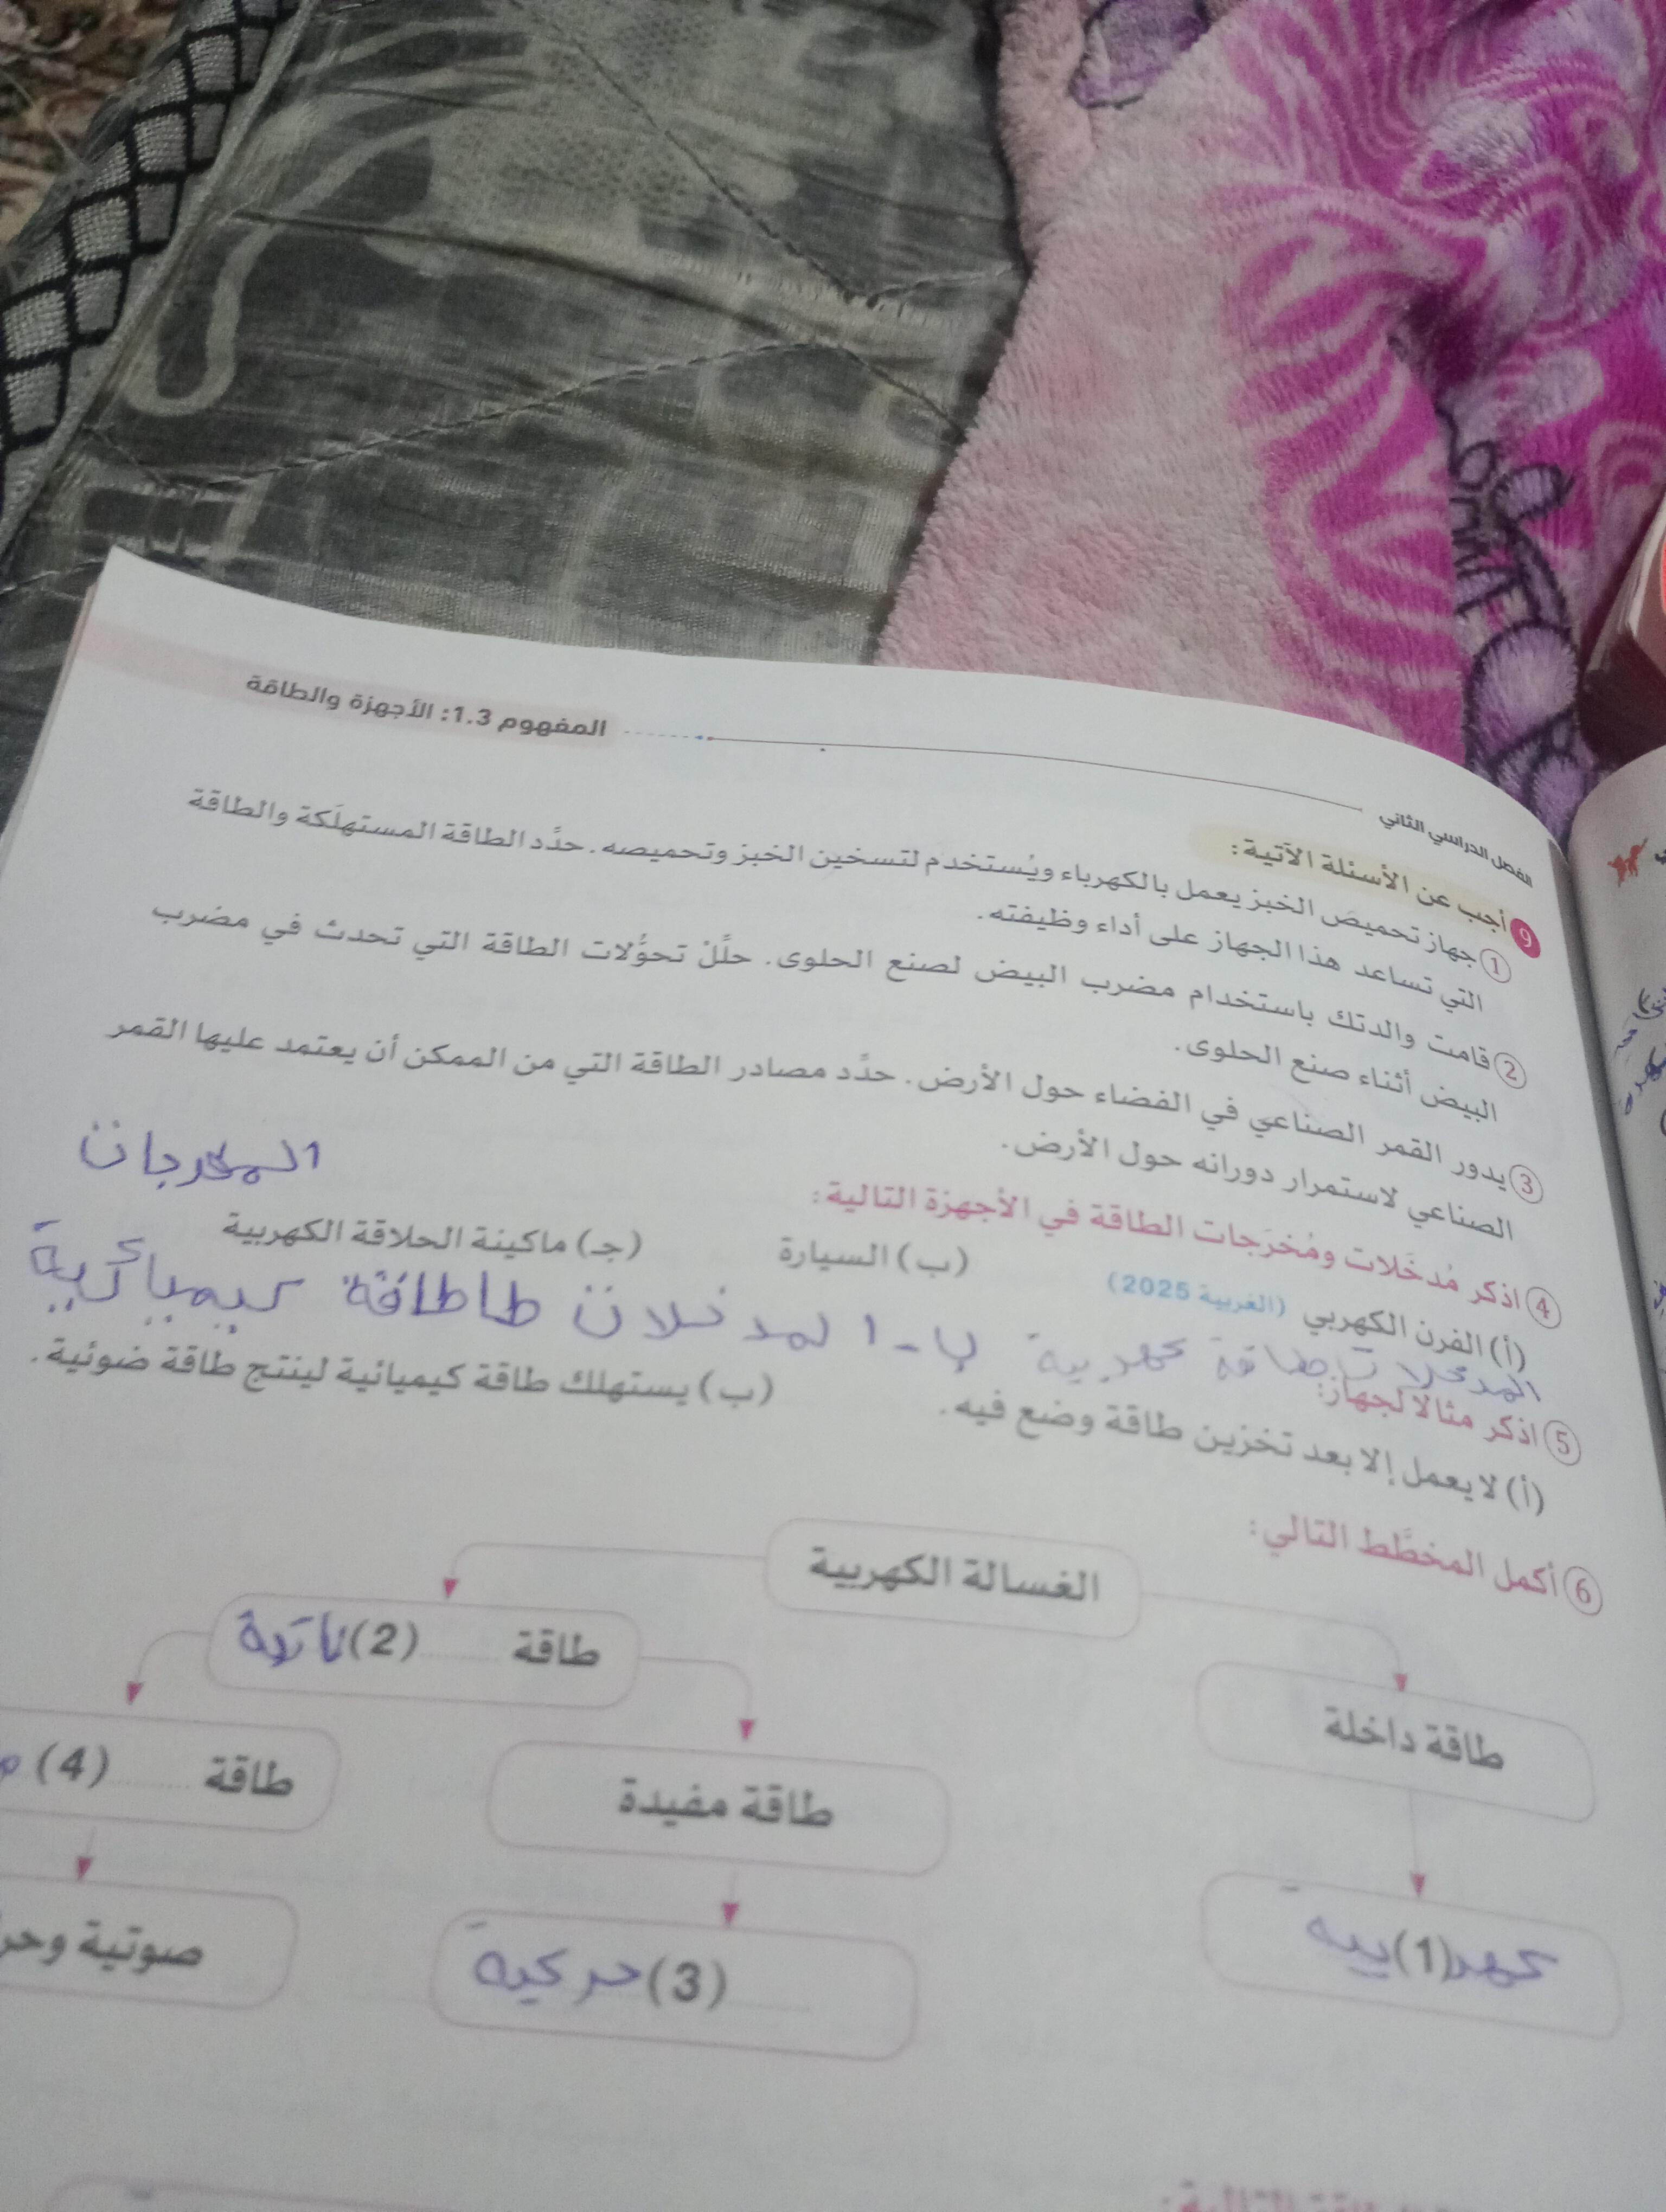 الفصل الدراسي الثاني
المفهوم 1.3: الأجهزة والطاقة
9 أجب عن الأسئلة الآتية:
1 جهاز تحميص الخبز يعمل بالكهرباء ويُستخدم لتسخين الخبز وتحميصه. حدِّد الطاقة المستهلَكة والطاقة
التي تساعد هذا الجهاز على أداء وظيفته.
2 قامت والدتك باستخدام مضرب البيض لصنع الحلوى. حلِّلْ تحوُّلات الطاقة التي تحدث في مضرب
البيض أثناء صنع الحلوى.
3 يدور القمر الصناعي في الفضاء حول الأرض. حدِّد مصادر الطاقة التي من الممكن أن يعتمد عليها القمر
الصناعي لاستمرار دورانه حول الأرض.
المخرجات
4 اذكر مُدخَلات ومُخرَجات الطاقة في الأجهزة التالية:
(أ) الفرن الكهربي (الغربية 2025) (ب) السيارة (جـ) ماكينة الحلاقة الكهربية
المدخلات طاقة كهربية ب - المدخلات طاطاقة كيميائية
5 اذكر مثالًا لجهاز:
(أ) لا يعمل إلا بعد تخزين طاقة وضع فيه. (ب) يستهلك طاقة كيميائية لينتج طاقة ضوئية.
6 أكمل المخطَّط التالي:
الغسالة الكهربية
طاقة داخلة
طاقة (2) ناتجة
طاقة مفيدة
طاقة (4)
كهر(1)بية
(3) حركية
صوتية